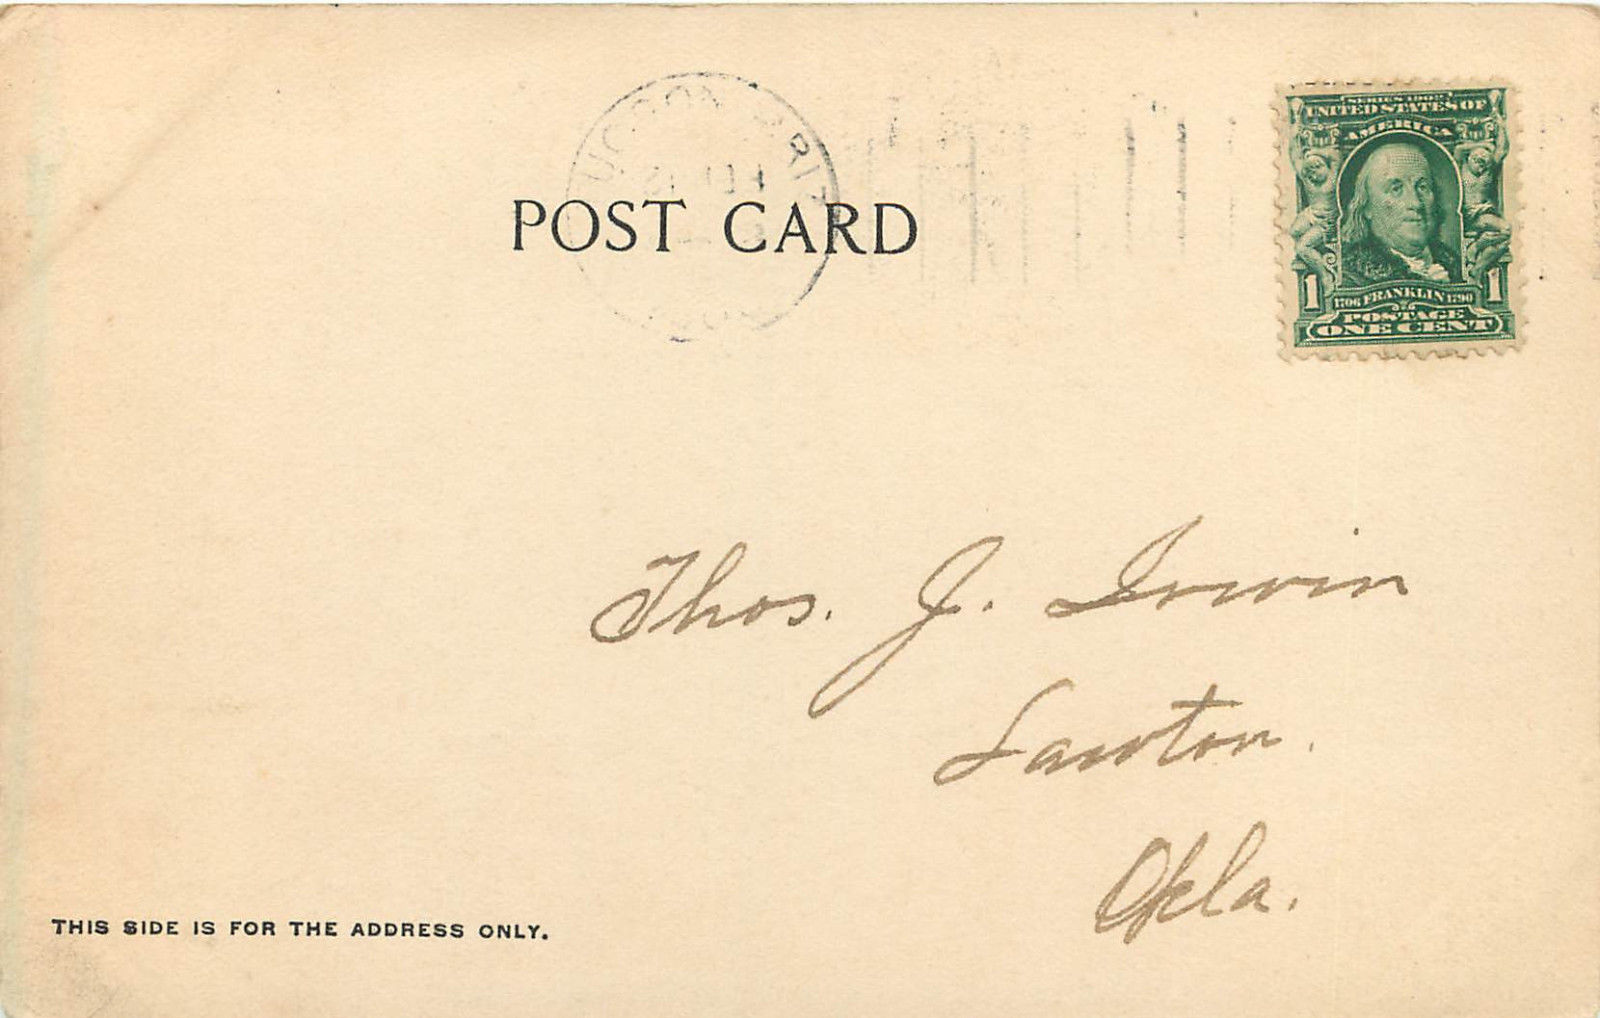 UCSON ARIZ
SERIES 1902
UNITED STATES OF
AMERICA
POST CARD
1 1706 FRANKLIN 1790 1
POSTAGE
ONE CENT
Thos. J. Irwin
Lawton.
Okla.
THIS SIDE IS FOR THE ADDRESS ONLY.